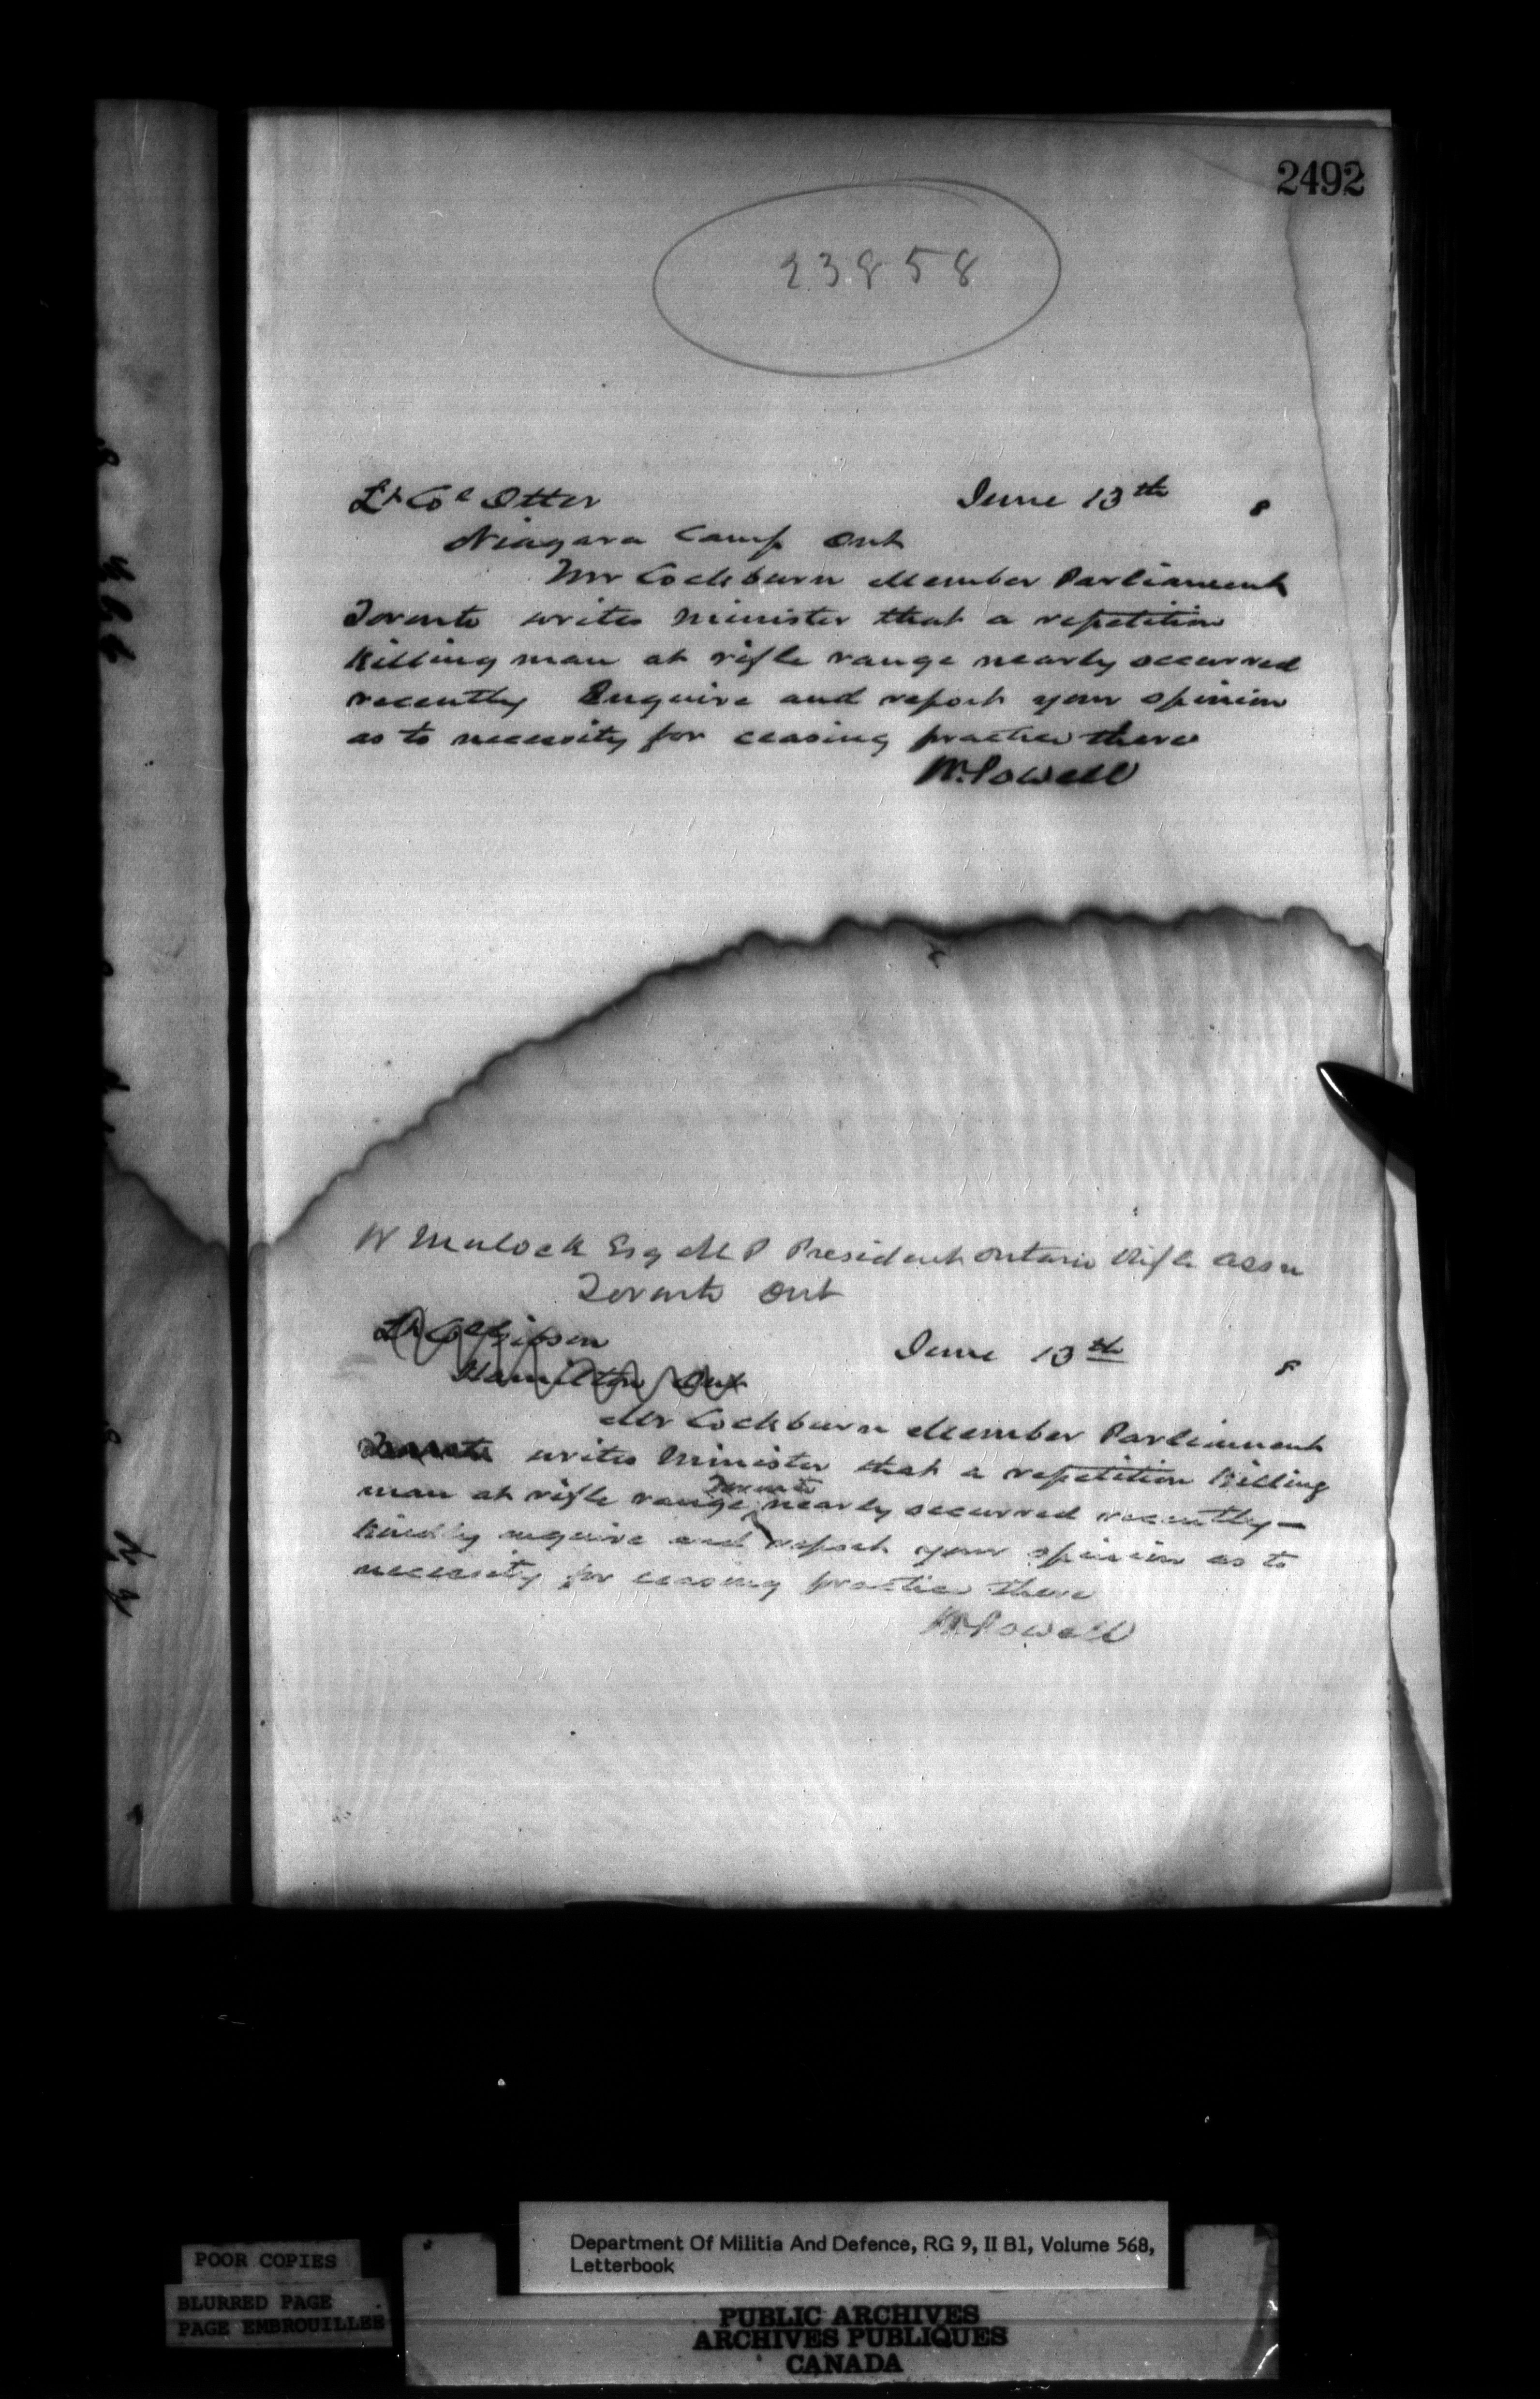 2492
23858
Lt Col Otter June 13th 8
Niagara Camp Ont
Mr Cockburn Member Parliament
Toronto writes Minister that a repetition
killing man at rifle range nearly occurred
recently Enquire and report your opinion
as to necessity for ceasing practice there
W. Powell
W Mulock Esq M P President Ontario Rifle Assn
Toronto Ont
Lt Col Gibson
Hamilton Ont
June 13th 8
Mr Cockburn Member Parliament
Toronto writes Minister that a repetition killing
man at rifle range Toronto nearly occurred recently—
kindly enquire and report your opinion as to
necessity for ceasing practice there
W. Powell
Department Of Militia And Defence, RG 9, II B1, Volume 568,
Letterbook
POOR COPIES
BLURRED PAGE
PAGE EMBROUILLEE
PUBLIC ARCHIVES
ARCHIVES PUBLIQUES
CANADA